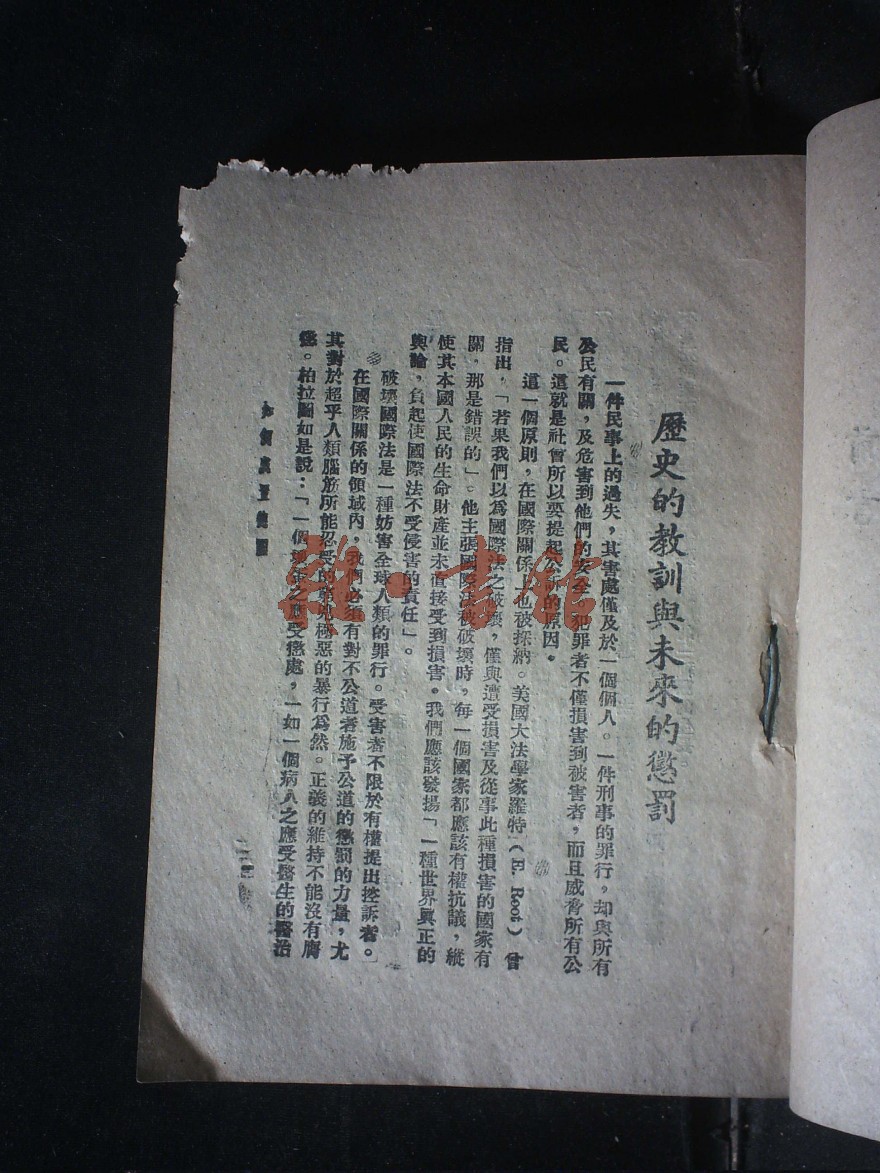 歷史的教訓與未來的懲罰
一件民事上的過失，其害處僅及於一個個人。一件刑事的罪行，却與所有
公民有關，及危害到他們的安全。犯罪者不僅損害到被害者，而且威脅所有公
民。這就是社會所以要提起公訴的原因。
這一個原則，在國際關係上也被採納。美國大法學家羅特（E. Root）曾
指出，「若果我們以爲國際法之破壞，僅與遭受損害及從事此種損害的國家有
關，那是錯誤的」。他主張國際法被破壞時，每一個國家都應該有權抗議，縱
使其本國人民的生命財產並未直接受到損害。我們應該發揚「一種世界眞正的
輿論，負起使國際法不受侵害的責任」。
破壞國際法是一種妨害全球人類的罪行。受害者不限於有權提出控訴者。
在國際關係的領域內，我們必須有對不公道者施予公道的懲罰的力量，尤
其對於超乎人類腦筋所能忍受的窮兇極惡的暴行爲然。正義的維持不能沒有膺
懲。柏拉圖如是說：「一個之應受懲處，一如一個病人之應受醫生的醫治
如何處置德國
雜·書館